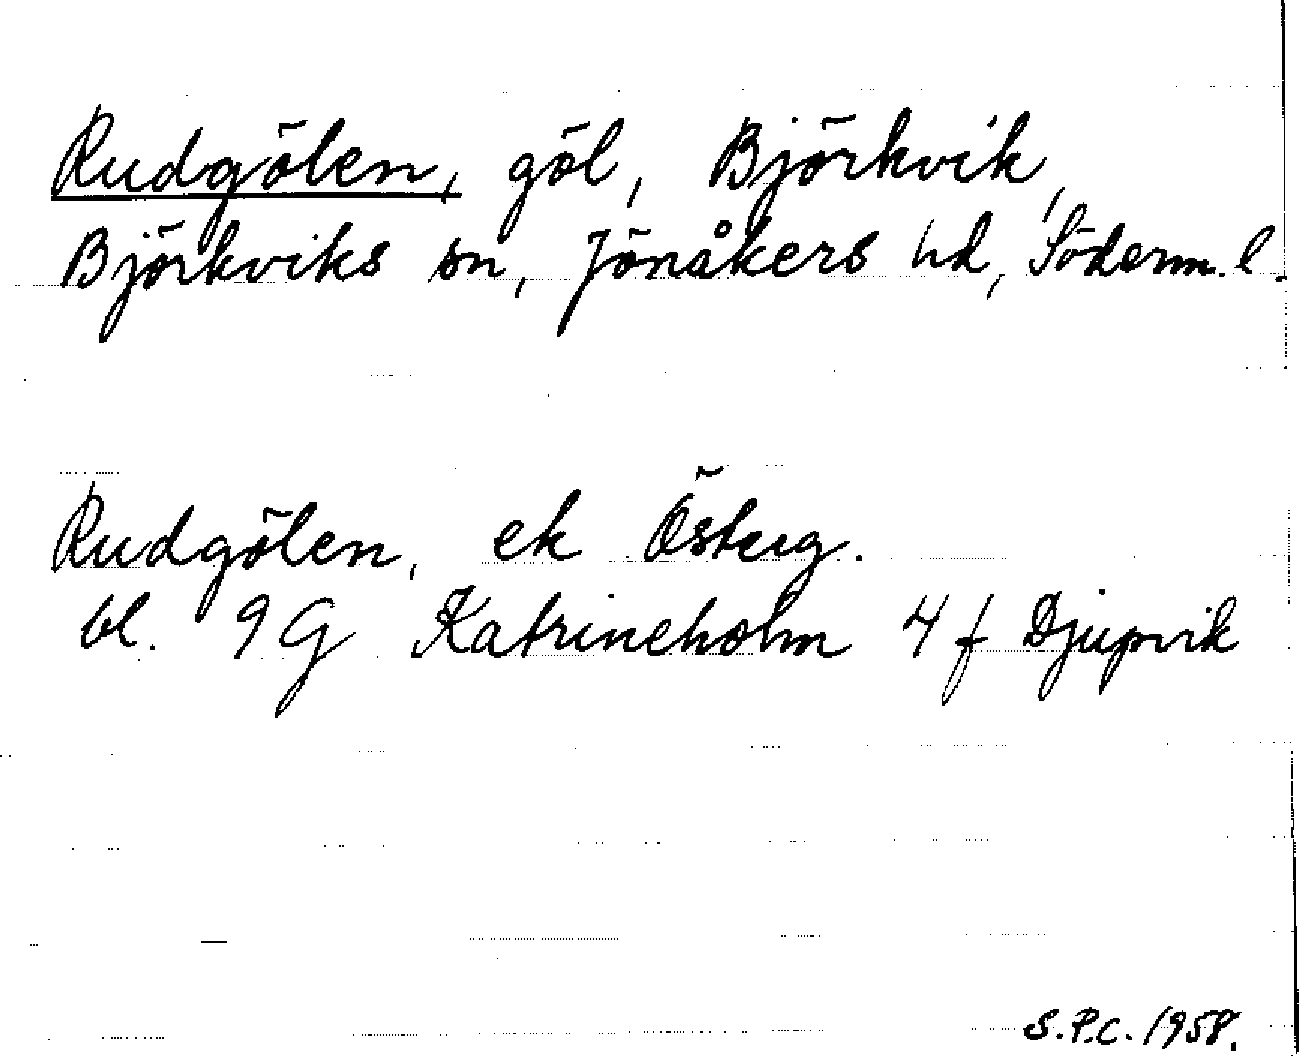 Rudgölen, göl, Björkvik,
Björkviks sn, Jönåkers hd, Söderm. l.
Rudgölen, ek Österg.
bl. 9G Katrineholm 4f Djupvik
S.P.C. 1958.